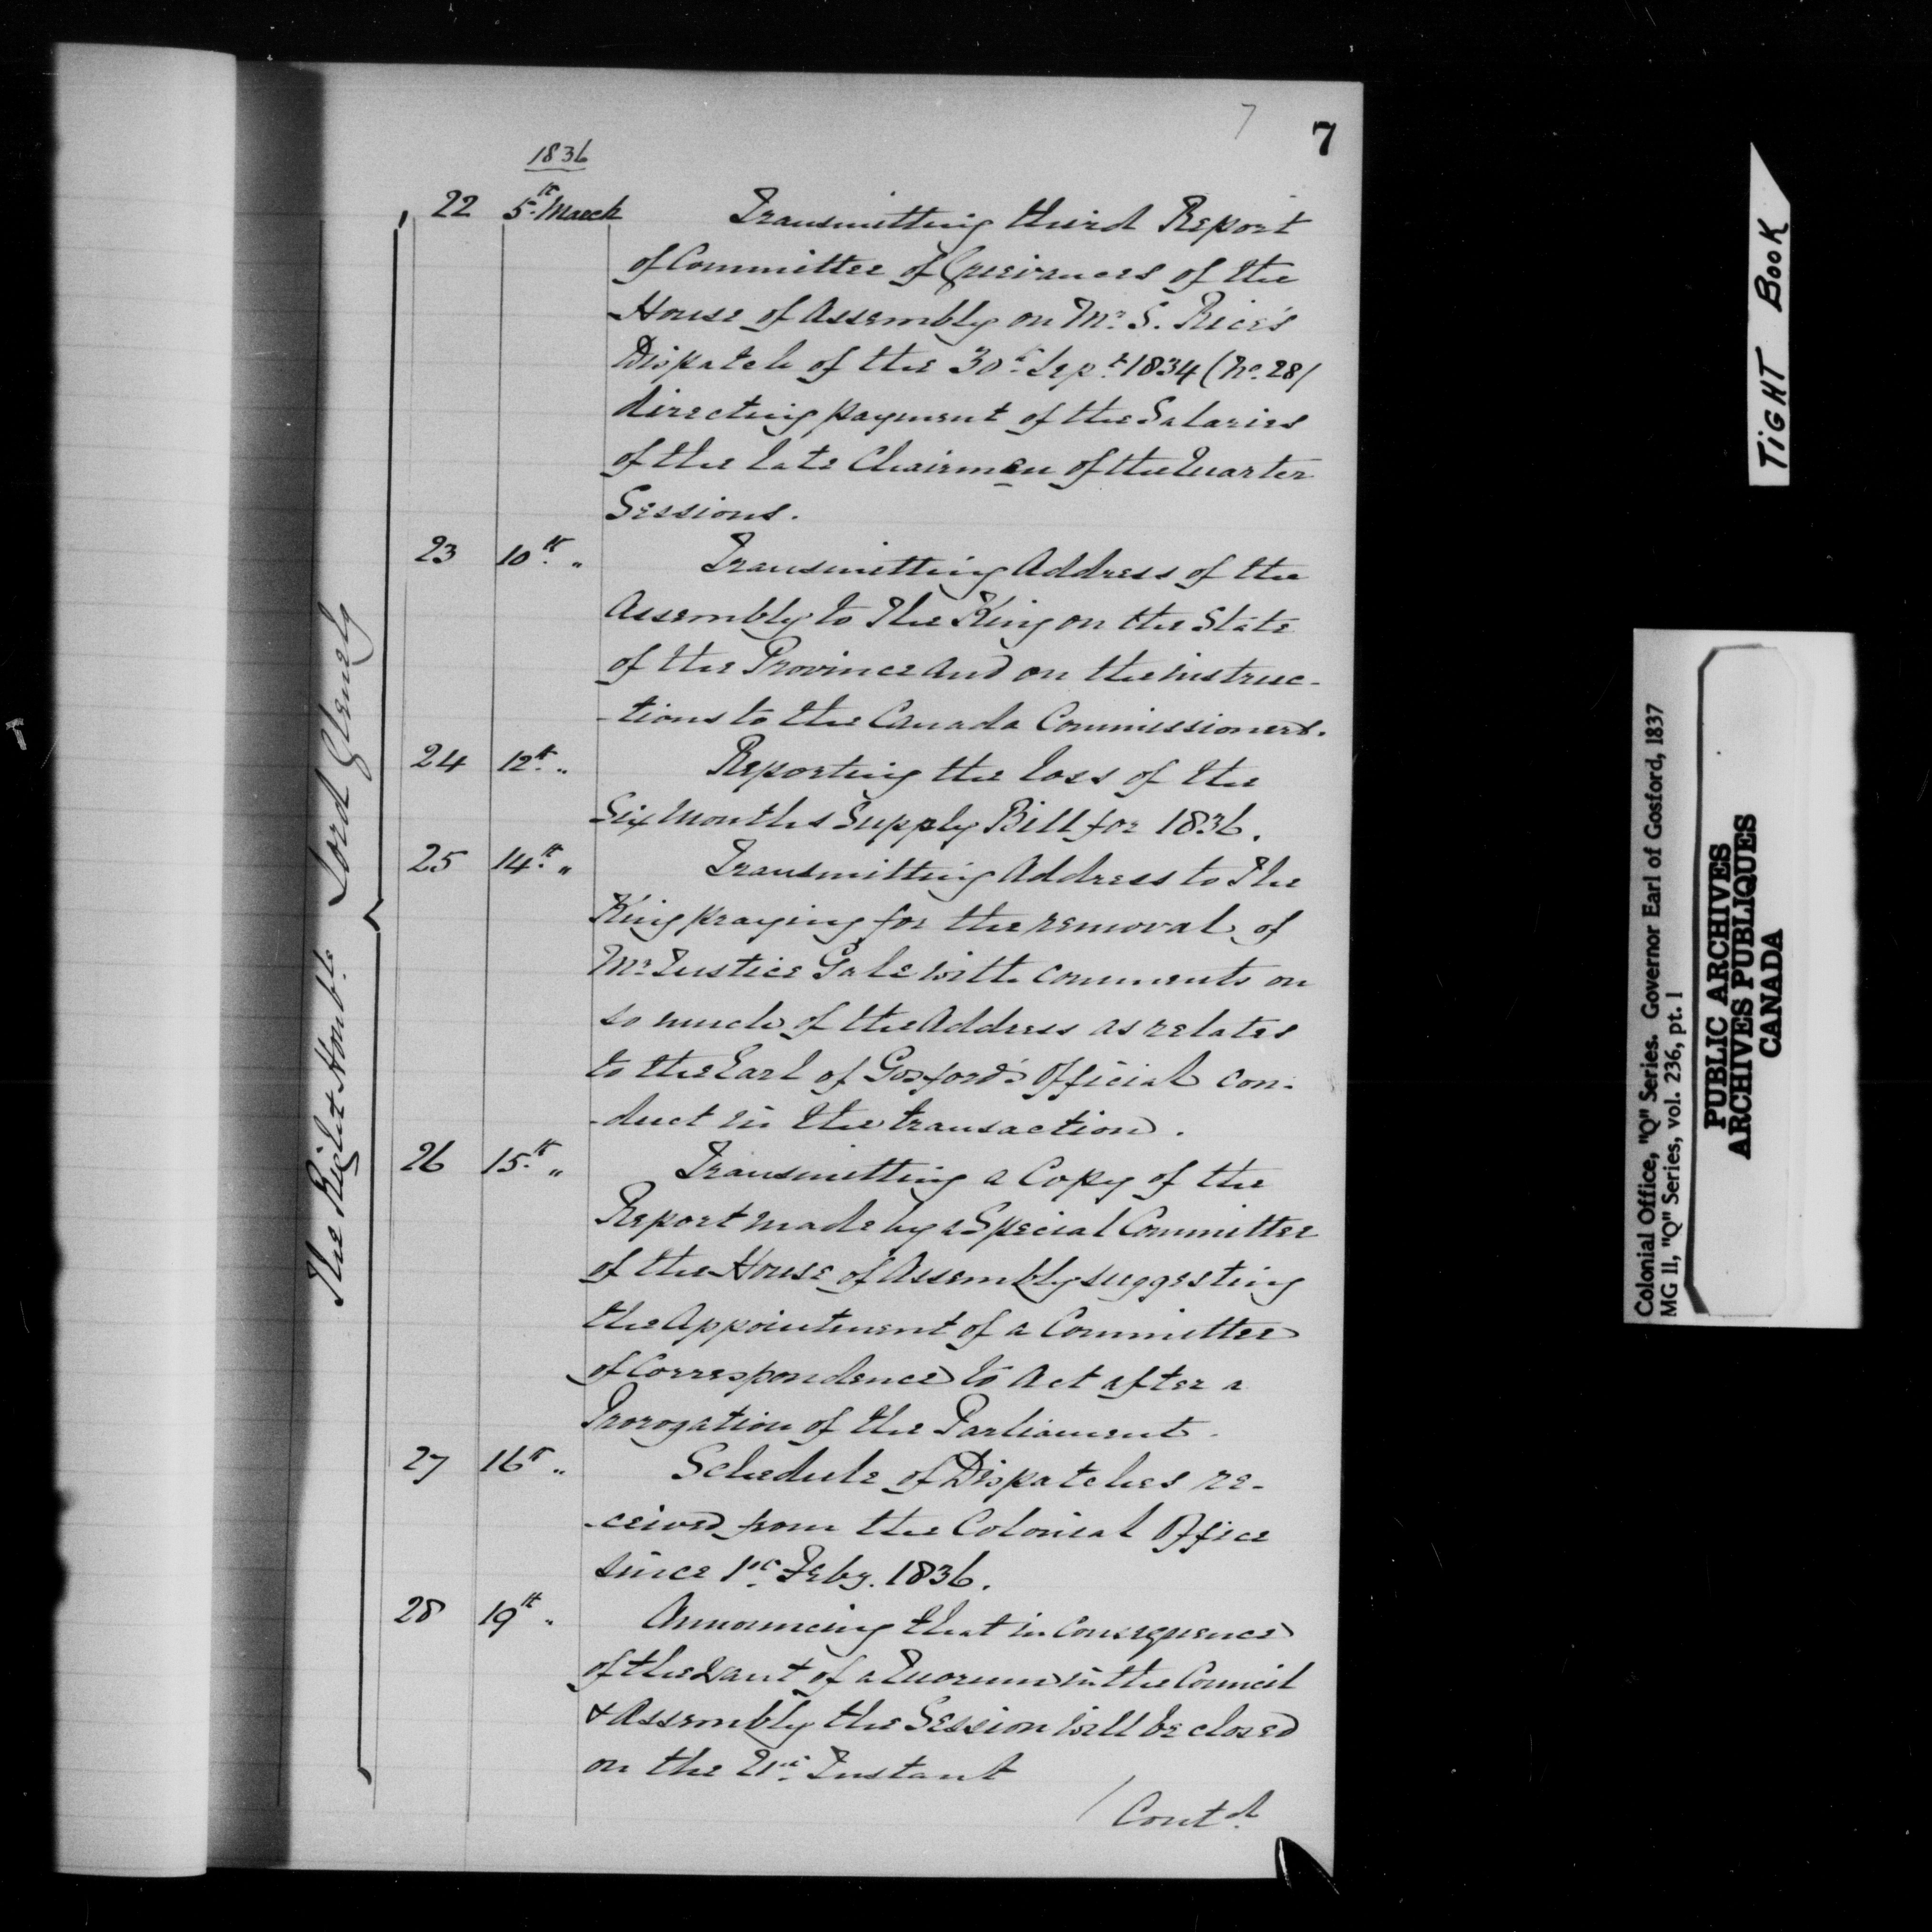 7
7
1836
22 5th March Transmitting third Report
of Committee of Grievances of the
House of Assembly on Mr. S. Rice's
Dispatch of the 30th Sept. 1834 (No. 28)
directing payment of the Salaries
of the late Chairmen of the Quarter
Sessions.
23 10th " Transmitting Address of the
Assembly to The King on the State
of the Province and on the instruc-
-tions to the Canada Commissioners.
24 12th " Reporting the loss of the
Six Months Supply Bill for 1836.
25 14th " Transmitting Address to The
King praying for the removal of
Mr. Justice Gale with comments on
so much of the Address as relates
to the Earl of Gosford's Official con-
-duct in the transaction.
26 15th " Transmitting a Copy of the
Report made by a Special Committee
of the House of Assembly suggesting
the Appointment of a Committee
of Correspondence to Act after a
Prorogation of the Parliament.
27 16th " Schedule of Dispatches re-
-ceived from the Colonial Office
since 1st Feby. 1836.
28 19th " Announcing that in Consequence
of the want of a Quorum in the Council
& Assembly the Session will be closed
on the 21st Instant
/ Contd.
The Right Honble. Lord Glenelg
TIGHT BOOK
Colonial Office, "Q" Series. Governor Earl of Gosford, 1837
MG 11, "Q" Series, vol. 236, pt. 1
PUBLIC ARCHIVES
ARCHIVES PUBLIQUES
CANADA